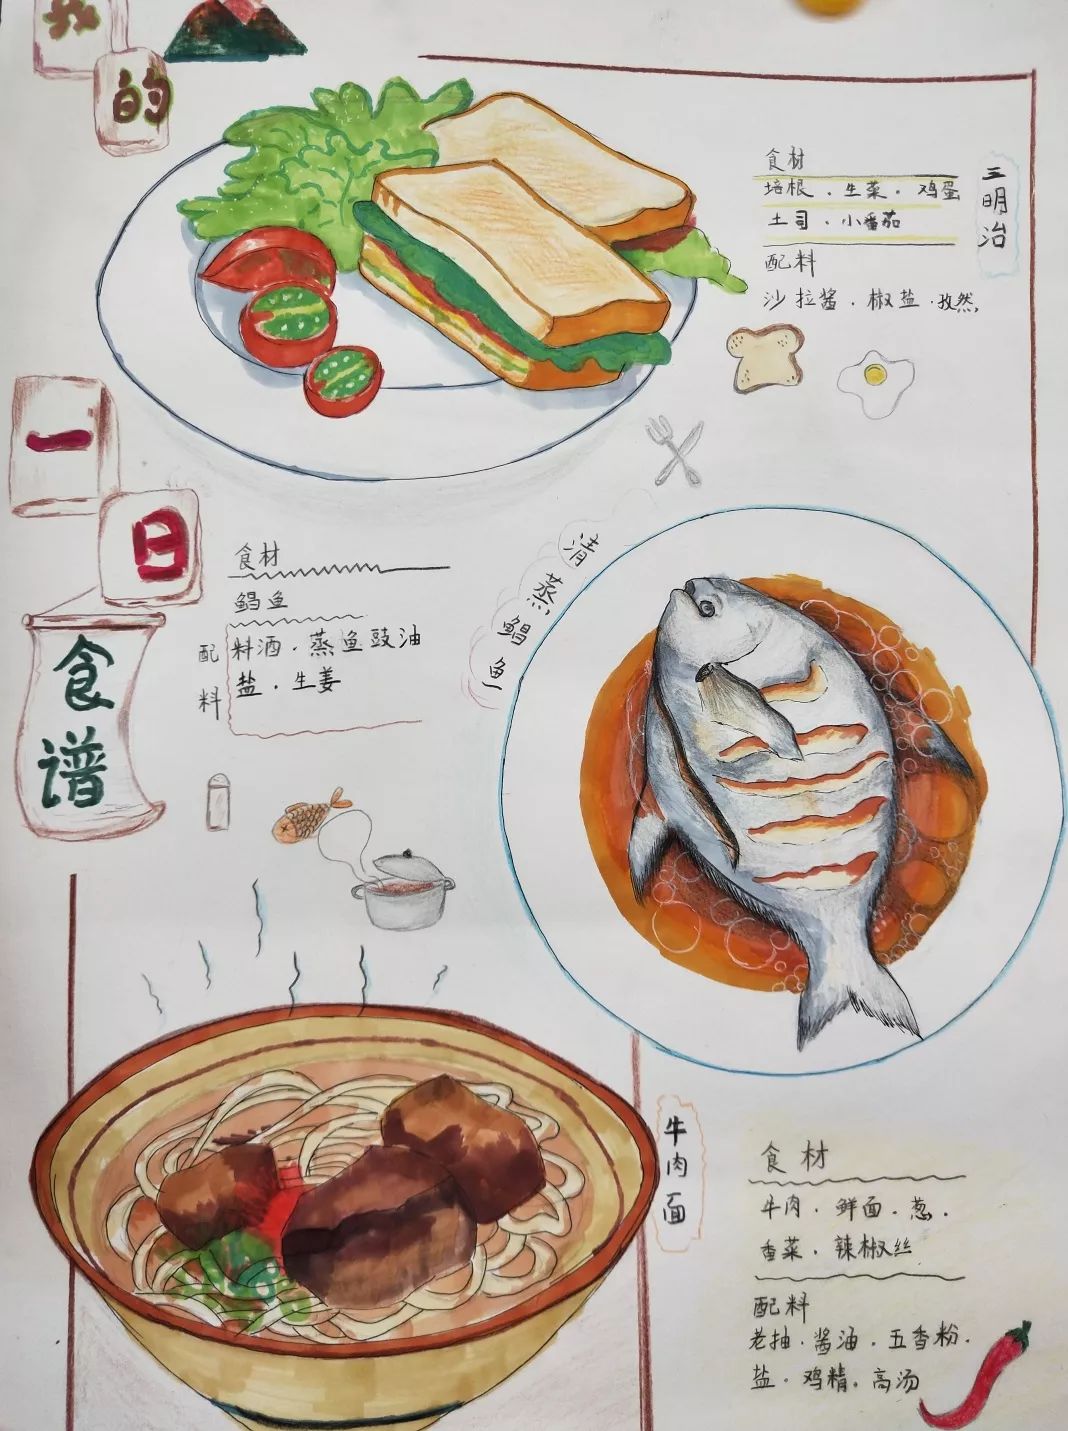 我的
一日
食谱
三明治
食材
培根．生菜．鸡蛋
土司．小番茄
配料
沙拉酱．椒盐．孜然,
清蒸鲳鱼
食材
鲳鱼
配料
料酒．蒸鱼豉油
盐．生姜
牛肉面
食材
牛肉．鲜面．葱．
香菜．辣椒丝
配料
老抽．酱油．五香粉．
盐．鸡精．高汤